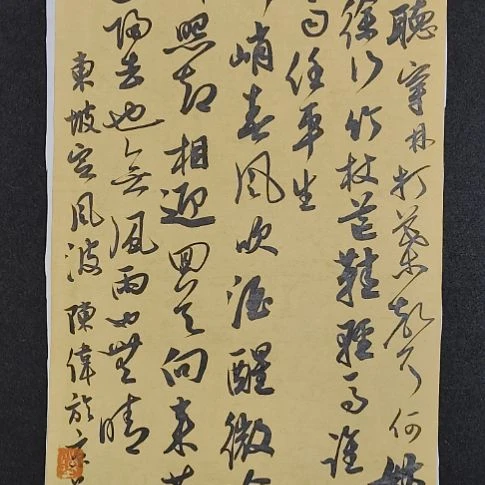 聽穿林打葉聲何
徐行竹杖芒鞋輕馬誰
任平生
峭春風吹酒醒微
照却相迎回首向來
歸去也無風雨也無晴
東坡定風波 陳偉於